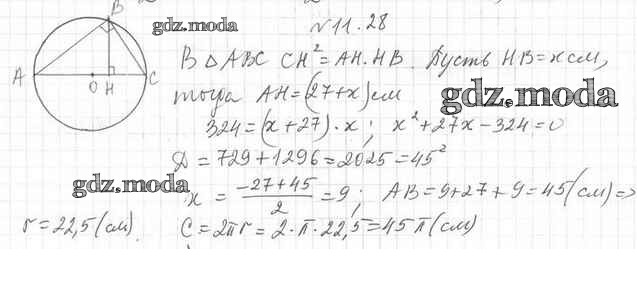 B
gdz.moda
№11.28
В △ABC CH² = AH·HB. Пусть HB = x см,
A O H C
тогда AH = (27+x) см
gdz.moda
324 = (x+27)·x; x²+27x−324=0
Д = 729+1296 = 2025 = 45²
gdz.moda
x = (-27+45)/2 = 9; AB = 9+27+9 = 45 (см) =>
r = 22,5 (см). C = 2πr = 2·π·22,5 = 45π (см)